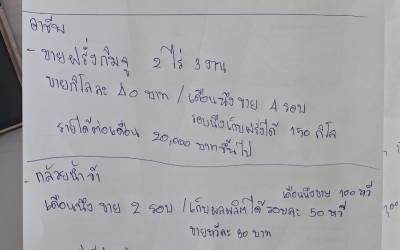 อาชีพ
- ขายฝรั่งกิมจู 2 ไร่ 3 งาน
ขายกิโลละ 40 บาท / เดือนนึงขาย 4 รอบ
รอบนึงเก็บฝรั่งได้ 150 กิโล
รายได้ต่อเดือน 20,000 บาทขึ้นไป
- กล้วยน้ำว้า
เดือนนึงขาย 100 หวี
เดือนนึง ขาย 2 รอบ / เก็บผลผลิตได้ รอบละ 50 หวี
ขายหวีละ 30 บาท